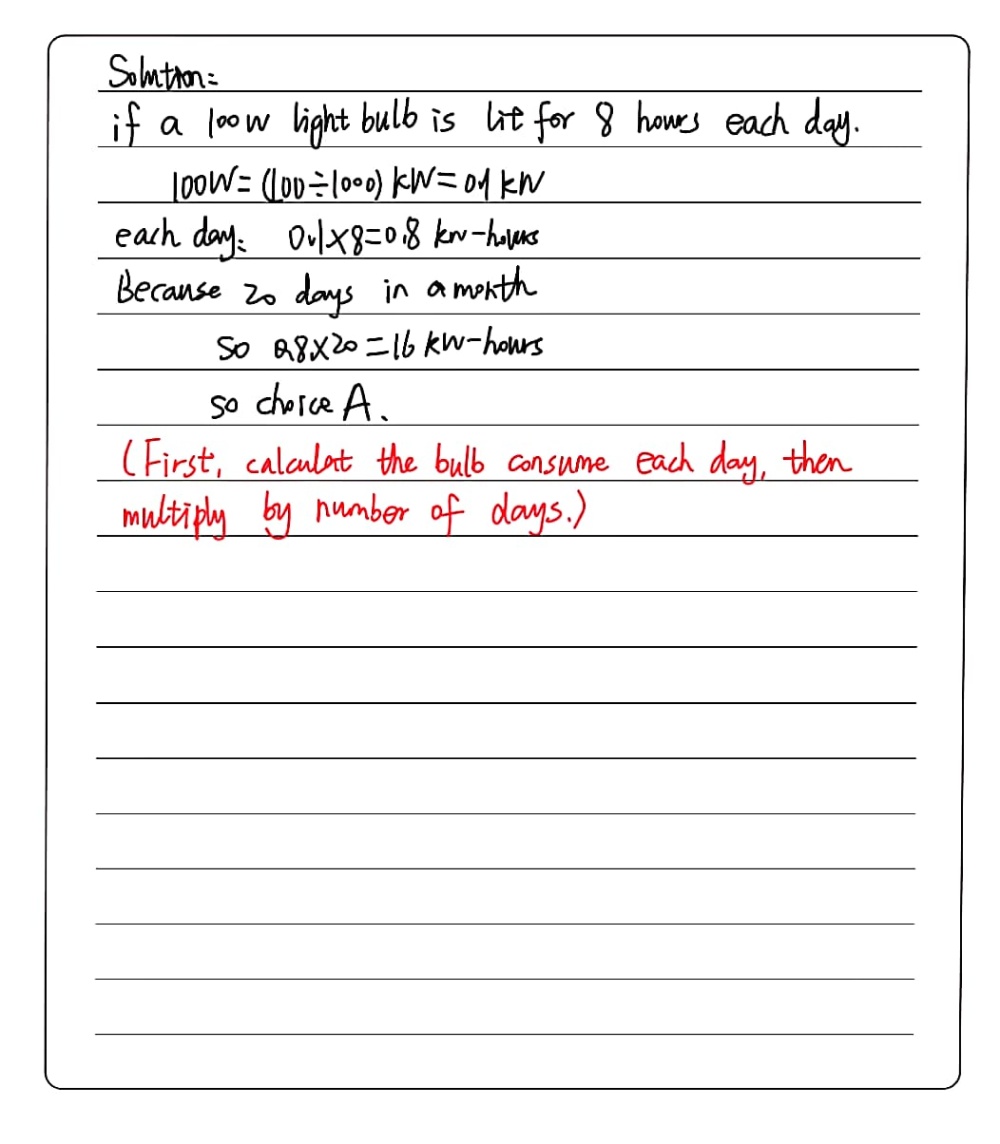 Solution:
if a 100W light bulb is lit for 8 hours each day.
100W=(100÷1000) kW=0.1 kW
each day: 0.1×8=0.8 kw-hours
Because 20 days in a month
so 0.8×20=16 kW-hours
so choice A.
(First, calculat the bulb consume each day, then
multiply by number of days.)